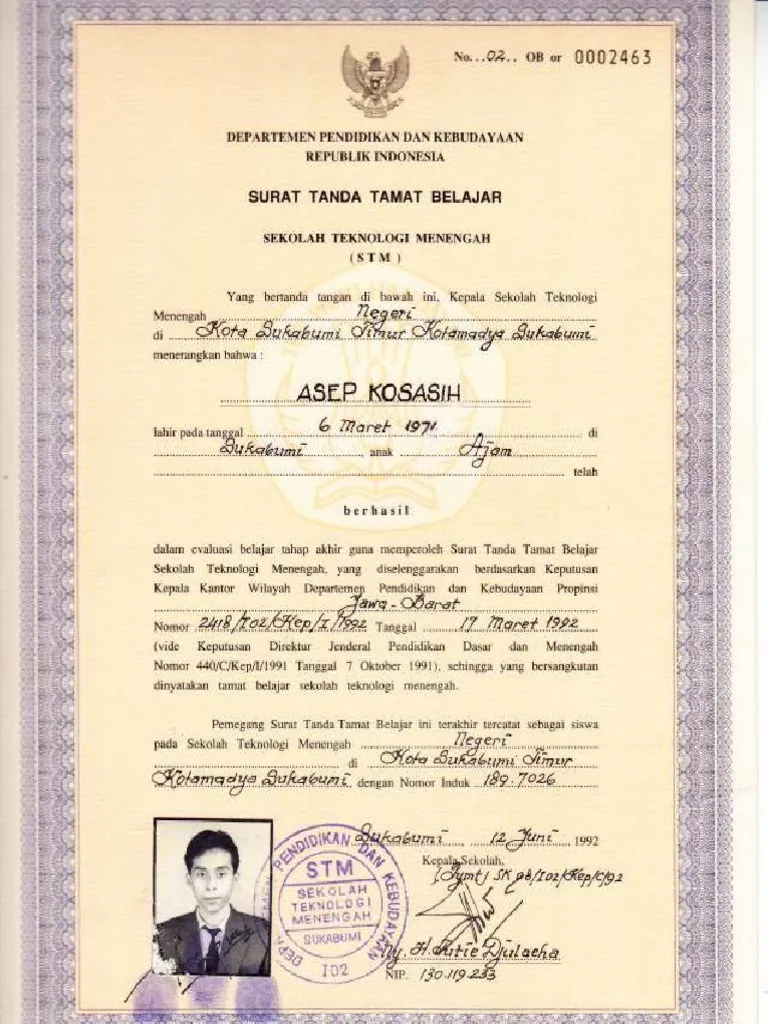 No...02.. OB or 0002463
DEPARTEMEN PENDIDIKAN DAN KEBUDAYAAN
REPUBLIK INDONESIA
SURAT TANDA TAMAT BELAJAR
SEKOLAH TEKNOLOGI MENENGAH
( S T M )
Yang bertanda tangan di bawah ini, Kepala Sekolah Teknologi
Menengah Negeri
di Kota Sukabumi Timur Kotamadya Sukabumi
menerangkan bahwa :
ASEP KOSASIH
lahir pada tanggal 6 Maret 1971 di
Sukabumi, anak Ajam
telah
berhasil
dalam evaluasi belajar tahap akhir guna memperoleh Surat Tanda Tamat Belajar
Sekolah Teknologi Menengah, yang diselenggarakan berdasarkan Keputusan
Kepala Kantor Wilayah Departemen Pendidikan dan Kebudayaan Propinsi
Jawa - Barat
Nomor 2418/I02/Kep/I/1992 Tanggal 17 Maret 1992
(vide Keputusan Direktur Jenderal Pendidikan Dasar dan Menengah
Nomor 440/C/Kep/I/1991 Tanggal 7 Oktober 1991), sehingga yang bersangkutan
dinyatakan tamat belajar sekolah teknologi menengah.
Pemegang Surat Tanda Tamat Belajar ini terakhir tercatat sebagai siswa
pada Sekolah Teknologi Menengah Negeri
di Kota Sukabumi Timur
Kotamadya Sukabumi dengan Nomor Induk 189.7026
Sukabumi, 12 Juni 1992
Kepala Sekolah,
SK 98/I02/Kep/C/92
Ny. H. Djulaeha
NIP. 130.119.233
DEPARTEMEN PENDIDIKAN DAN KEBUDAYAAN
STM
SEKOLAH
TEKNOLOGI
MENENGAH
SUKABUMI
I02